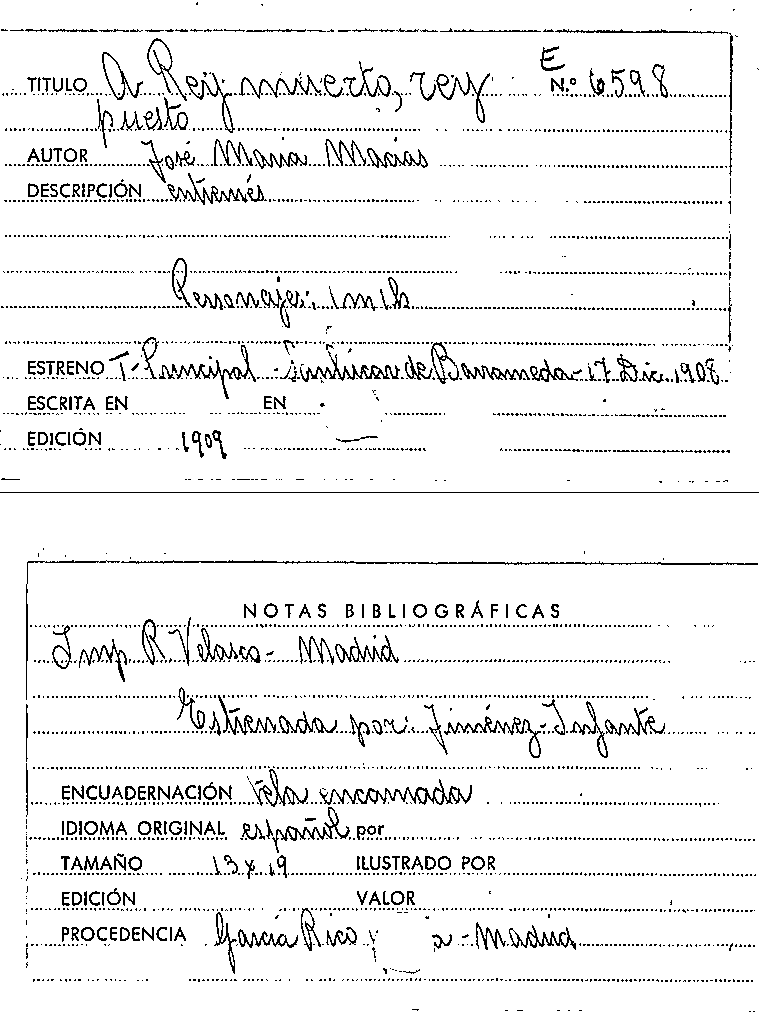 E
TITULO A Rey muerto, rey N.º 6598
puesto
AUTOR José Maria Macias
DESCRIPCIÓN entremés
Personajes; 1m 1h
ESTRENO T. Principal - Sanlúcar de Barrameda - 17 Dic. 1908
ESCRITA EN EN
EDICIÓN 1909
NOTAS BIBLIOGRÁFICAS
Imp R Velasco - Madrid
Estrenada por: Jiménez - Infante
ENCUADERNACIÓN tela encarnada
IDIOMA ORIGINAL español por
TAMAÑO 13 x 19 ILUSTRADO POR
EDICIÓN VALOR
PROCEDENCIA García Rico y - Madrid